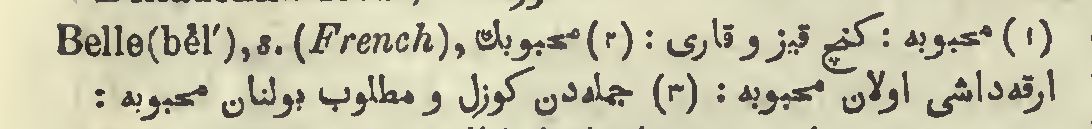 Belle (bĕl′), s. (French), (١) محبوبه : كنج قيز و قارى : (٢) محبوبك
ارقه‌داشى اولان محبوبه : (٣) جمله‌دن كوزل و مطلوب بولنان محبوبه :